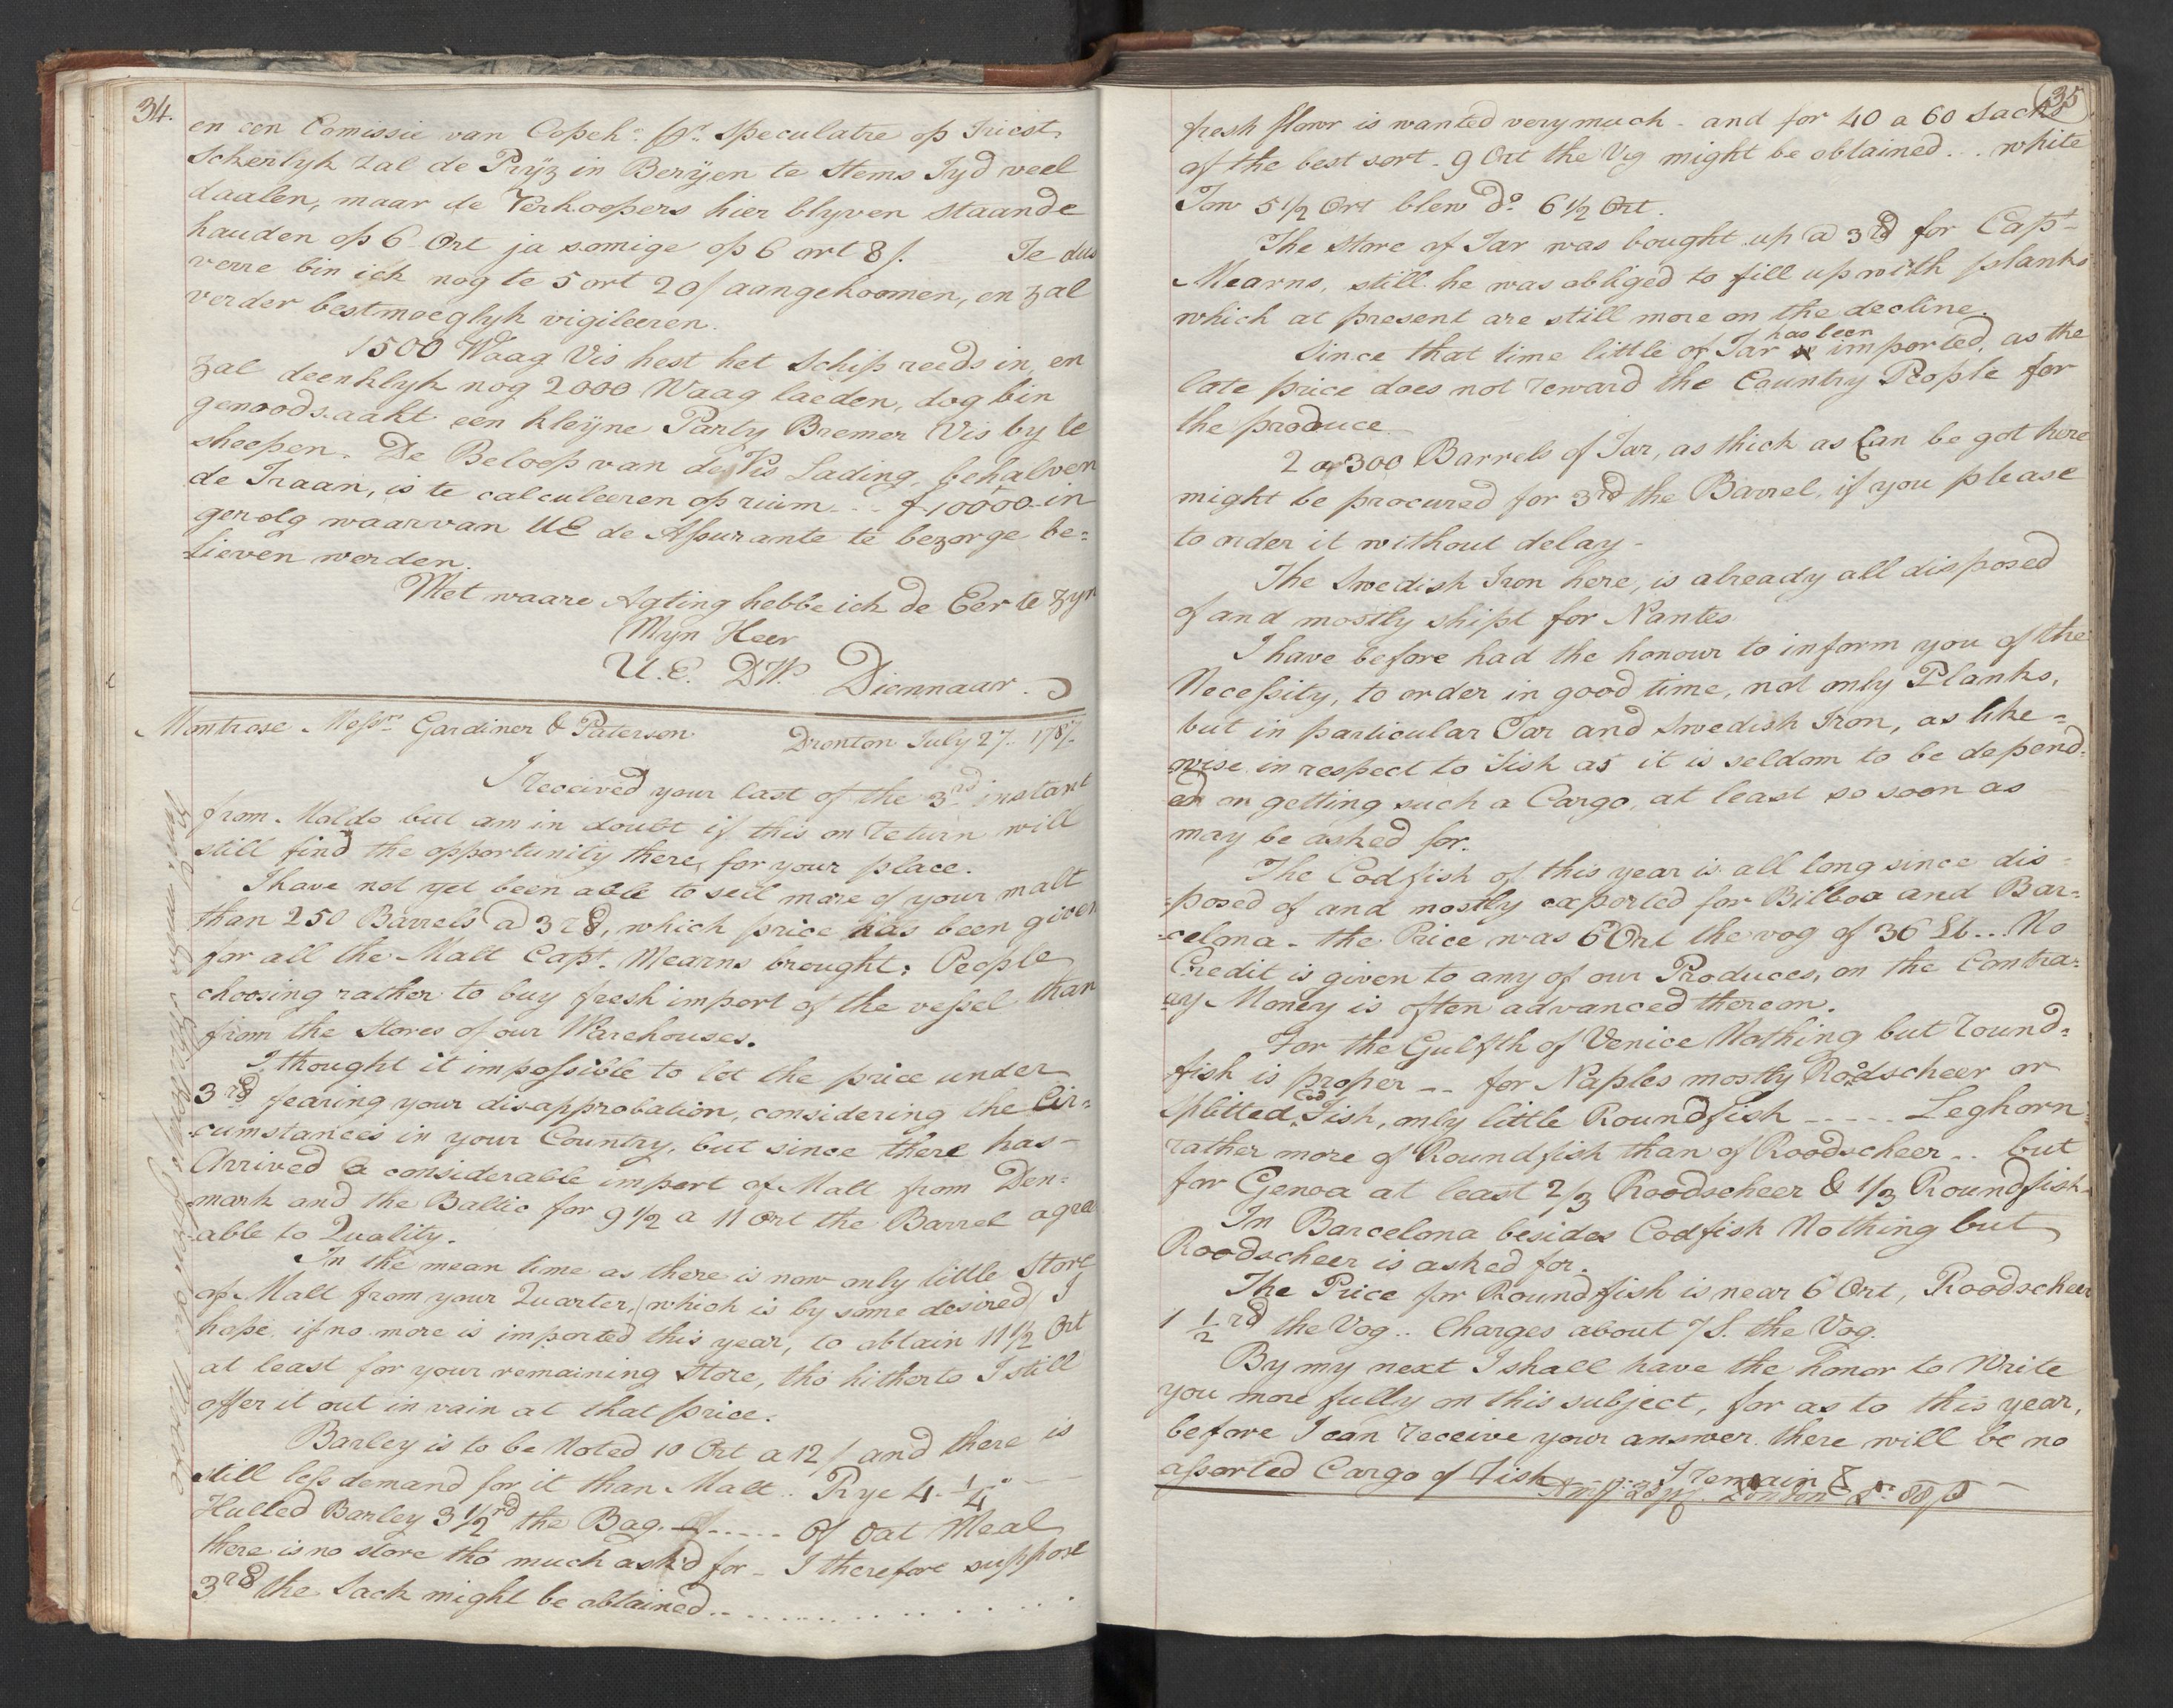 34.
en een Comissie van Copehn. pr. speculatie op Triest
Schenlyk zal de Pryz in Beryen te Stems Tyd veel
daalen, maar de Verkoopers hier blyven staande
hauden op 6 Ort ja somige op 6 ort 8 s. Te dus
verre bin ick nog te 5 ort 20 s aangekoomen, en zal
verder bestmoeglyk vigileeren.
1500 Waag Vis hest het Schip reeds in, en
zal deenklyk nog 2000 Waag laeden, dog bin
genoodsaakt een kleyne Party Bremer Vis by te
sheepen. De Beloop van de Vis Lading, behalven
de Traan, is te calculeeren op ruim .. f 10000 in
gevolg waarvan UE de Assurante te bezorge be=
lieven werden.
Met waare Agting hebbe ick de Eer te zyn
Myn Heer
U.E. DW. Diennaar.
Montrose. Messrs. Gardiner & Paterson Dronton July 27. 1787.
I received your last of the 3rd instant
from Molde but am in doubt if this on return will
still find the opportunity there, for your place.
I have not yet been able to sell more of your malt
than 250 Barrels a 3 rd, which price has been given
for all the Malt Capt. Mearns brought; People
choosing rather to buy fresh import of the vessel than
from the Stores of our Warehouses.
I thought it impossible to let the price under
3 rd fearing your disapprobation, considering the Cir=
cumstances in your Country, but since there has
Arrived a considerable import of Malt from Den=
mark and the Baltic for 9 1/2 a 11 Ort the Barrel agree
able to Quality.
In the mean time as there is now only little Store
of Malt from your Quarter, (which is by some desired) I
hope, if no more is imported this year, to obtain 11 1/2 Ort
at least for your remaining Store, tho hitherto I still
offer it out in vain at that price.
Barley is to be Noted 10 Ort a 12 / and there is
still less demand for it than Malt .. Rye 4 1/4
Hulled Barley 3 1/2 rd the Bag. ..... Of Oat Meal
there is no store tho much ask'd for - I therefore suppose
3 rd the Sack might be obtained ..........
35
fresh flowr is wanted very much - and for 40 a 60 Sacks
of the best sort - 9 Ort the Vog might be obtained .. white
Tow 5 1/2 Ort blew do. 6 1/2 Ort.
The Store of Tar was bought up a 3 rd for Capt.
Mearns, still he was obliged to fill up with planks
which at present are still more on the decline.
has been
Since that time little of Tar imported, as the
late price does not reward the Country People for
the produce
2 a 300 Barrels of Tar, as thick as Can be got here
might be procured for 3 rd the Barrel, if you please
to order it without delay -
The Swedish Iron here, is already all disposed
of and mostly shipt for Nantes
I have before had the honour to inform you of the
Necessity, to order in good time, not only Planks,
but in particular Tar and Swedish Iron, as like=
wise in respect to Fish as it is seldom to be depend=
ed on getting such a Cargo, at least so soon as
may be asked for.
The Codfish of this year is all long since dis=
=posed of and mostly exported for Bilboa and Bar=
=celona - the Price was 6 Ort the vog of 36 lb... No
Credit is given to any of our Produces, on the Contra=
ry Money is often advanced thereon.
For the Gulfth of Venice Nothing but round=
fish is proper -- for Naples mostly Roodscheer or
Cod
splitted Fish, only little Roundfish ---- Leghorn
rather more of Roundfish than of Roodscheer .. but
for Genoa at least 2/3 Roodscheer & 1/3 Roundfish
In Barcelona besides Codfish Nothing but
Roodscheer is asked for.
The Price for Roundfish is near 6 Ort, Roodscheer
1 1/2 rd the Vog .. Charges about 7 S. the Vog.
By my next I shall have the honor to Write
you more fully on this subject, for as to this year,
before I can receive your answer there will be no
assorted Cargo of Fish
I remain &